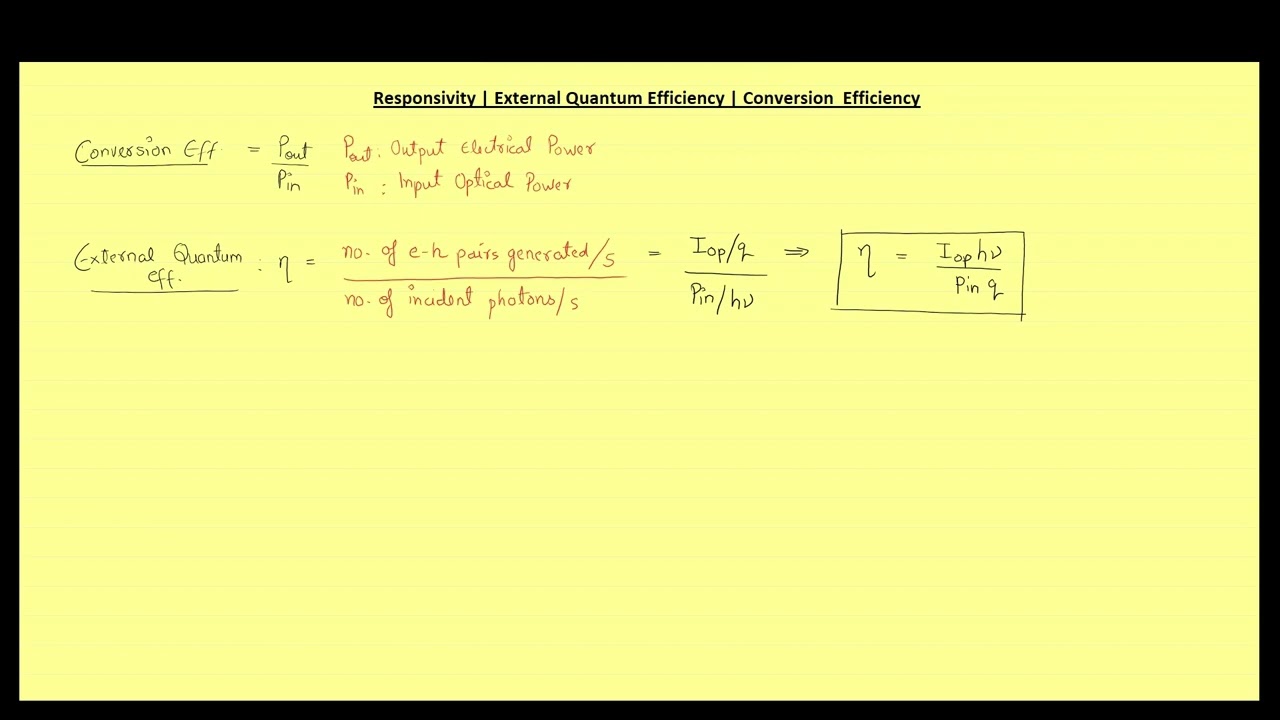 Responsivity | External Quantum Efficiency | Conversion Efficiency
Conversion Eff. = Pout / Pin Pout : Output Electrical Power
Pin : Input Optical Power
External Quantum eff. : η = no. of e-h pairs generated/s / no. of incident photons/s = Iop/q / Pin/hν ⇒ η = Iop hν / Pin q